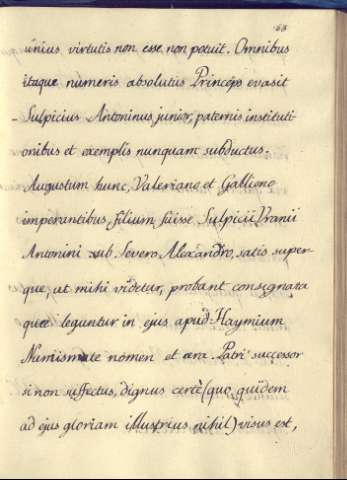 68
unius virtutis non esse non potuit. Omnibus
itaque numeris absolutus Princeps evasit
Sulpicius Antoninus junior, paternis instituti-
onibus et exemplis nunquam subductus.
Augustum hunc, Valeriano et Gallieno
imperantibus, filium fuisse Sulpicii Uranii
Antonini sub Severo Alexandro, satis super-
que, ut mihi videtur, probant consignata
quæ leguntur in ejus apud Haymium
Numismate nomen et æra. Patri successor
si non suffectus, dignus certè (quo quidem
ad ejus gloriam illustrius nihil) visus est,